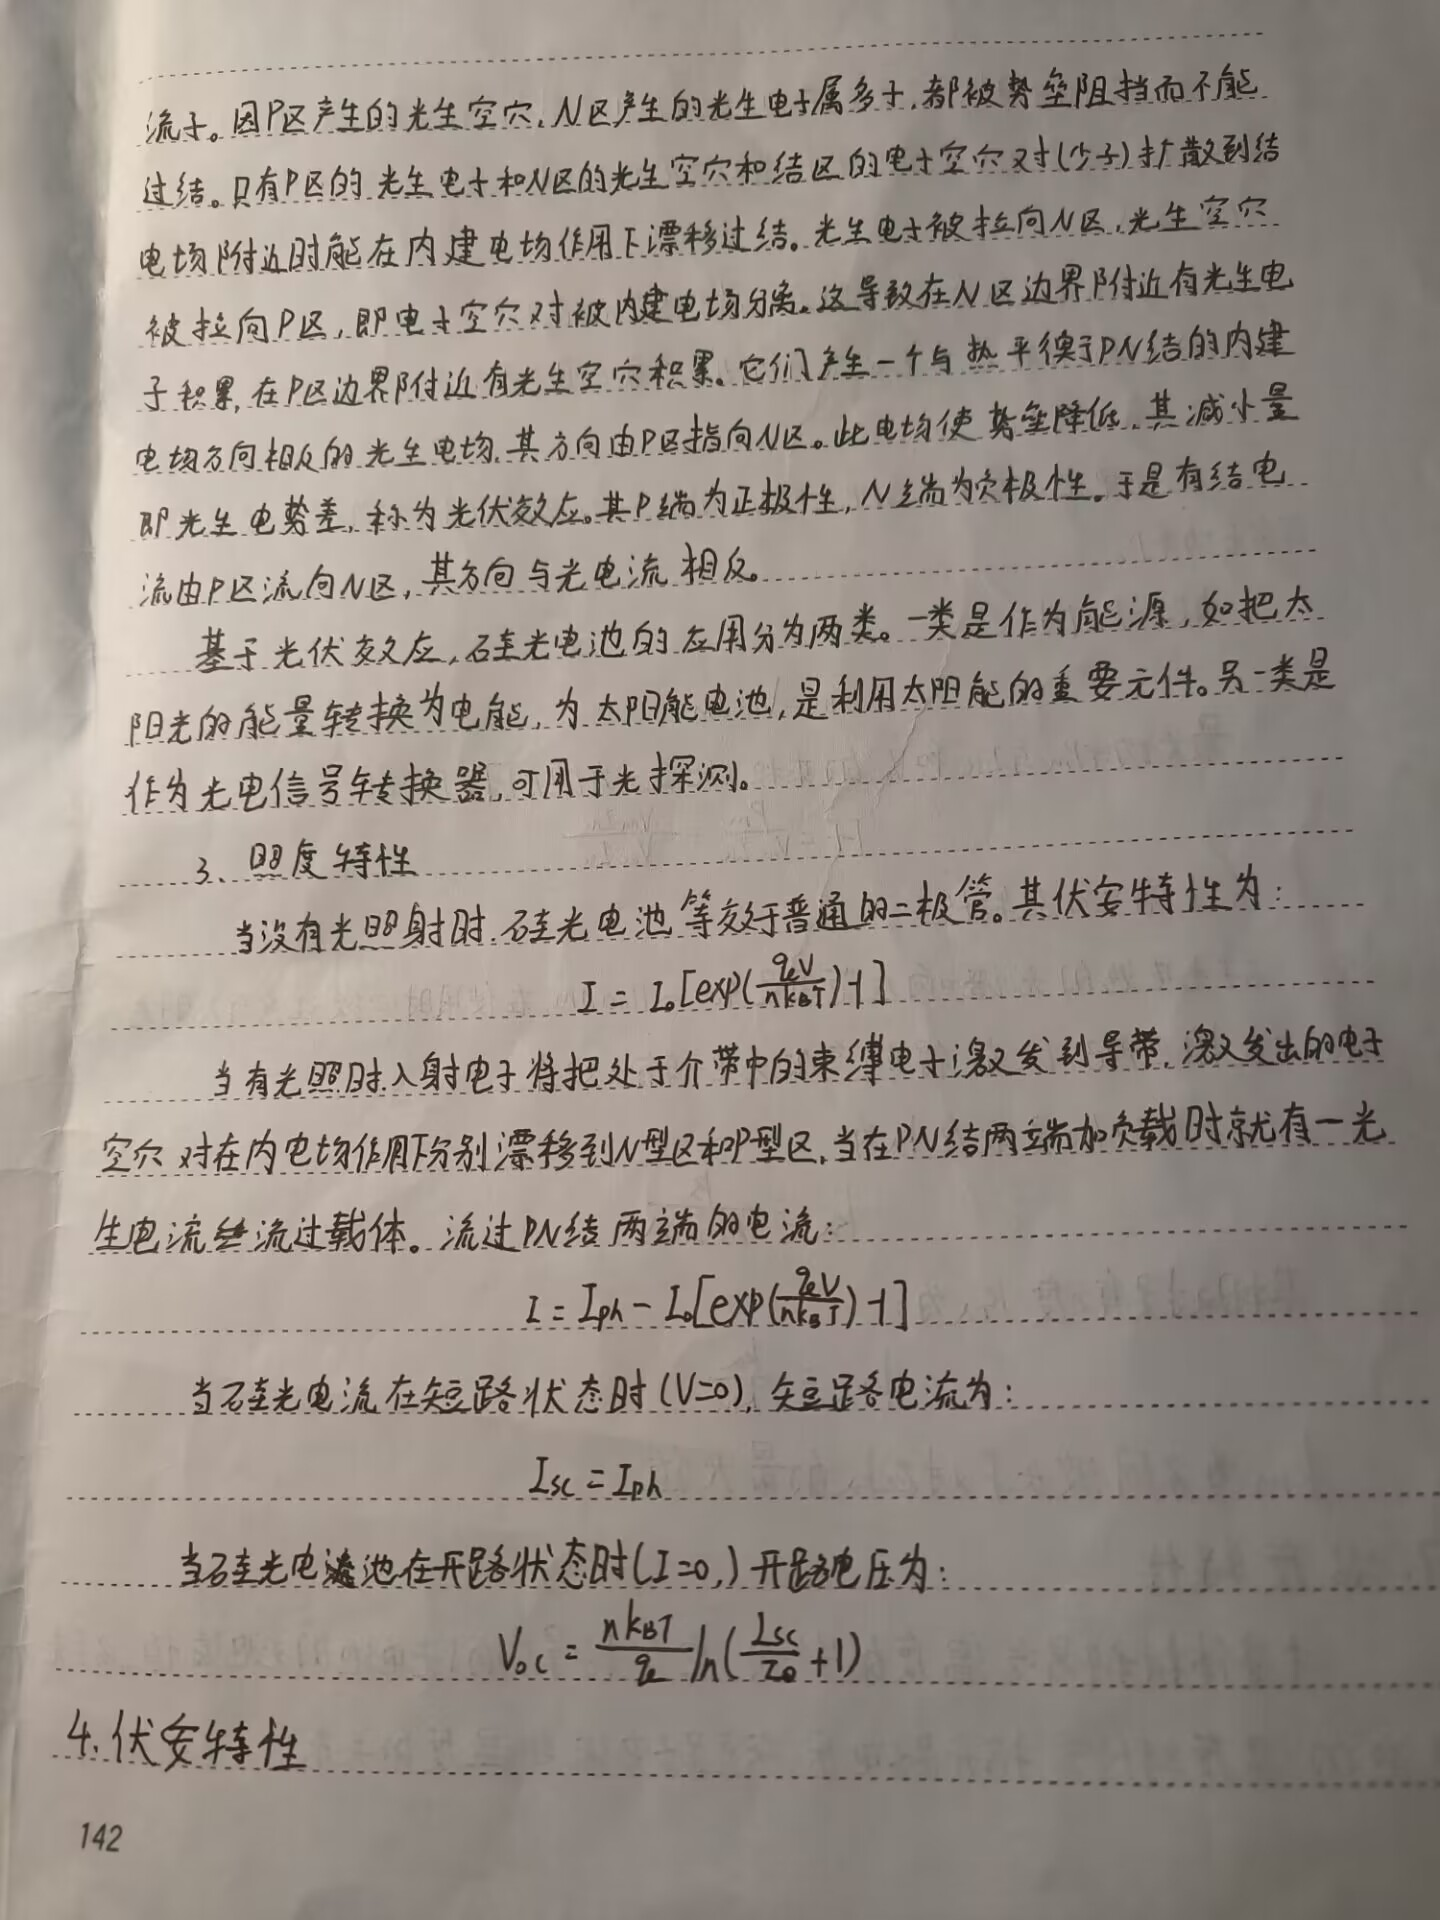 流子。因P区产生的光生空穴，N区产生的光生电子属多子，都被势垒阻挡而不能
过结。只有P区的光生电子和N区的光生空穴和结区的电子空穴对(少子)扩散到结
电场附近时能在内建电场作用下漂移过结。光生电子被拉向N区，光生空穴
被拉向P区，即电子空穴对被内建电场分离。这导致在N区边界附近有光生电
子积累，在P区边界附近有光生空穴积累。它们产生一个与热平衡于PN结的内建
电场方向相反的光生电场，其方向由P区指向N区。此电场使势垒降低，其减小量
即光生电势差，称为光伏效应。其P端为正极性，N端为负极性。于是有结电
流由P区流向N区，其方向与光电流相反。
基于光伏效应，硅光电池的应用分为两类。一类是作为能源，如把太
阳光的能量转换为电能，为太阳能电池，是利用太阳能的重要元件。另一类是
作为光电信号转换器，可用于光探测。
3、照度特性
当没有光照射时，硅光电池等效于普通的二极管。其伏安特性为：
I = I₀[exp(qeV/nkBT)-1]
当有光照时，入射电子将把处于介带中的束缚电子激发到导带，激发出的电子
空穴对在内电场作用下分别漂移到N型区和P型区，当在PN结两端加负载时就有一光
生电流流过载体。流过PN结两端的电流：
I = Iph - I₀[exp(qeV/nkBT)-1]
当硅光电流在短路状态时(V=0)，短路电流为：
Isc = Iph
当硅光电池在开路状态时(I=0,)开路电压为：
Voc = nkBT/qe ln(Isc/I0 + 1)
4、伏安特性
142